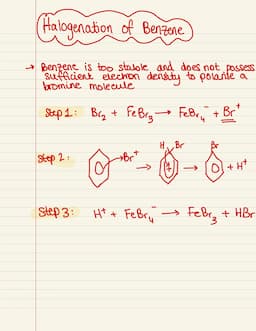 Halogenation of Benzene
→ Benzene is too stable and does not possess
sufficient electron density to polarise a
bromine molecule
Step 1: Br₂ + FeBr₃ → FeBr₄⁻ + Br⁺
Step 2: → Br⁺ → H Br + → Br + H⁺
Step 3: H⁺ + FeBr₄⁻ → FeBr₃ + HBr